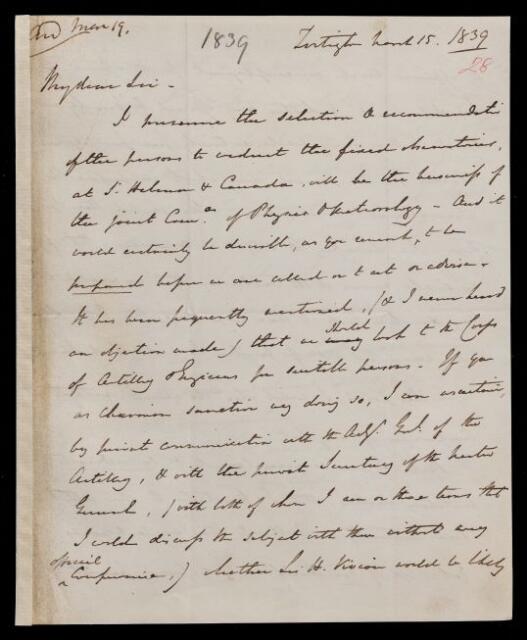 Mar 19.
1839
Tortington March 15. 1839
28
My dear Sir -
I presume the selection & recommendation
of the persons to conduct the fixed observatories,
at St. Helena & Canada, will be the business of
the joint Com.ee of Physics & Meteorology - And it
would certainly be desirable, as you remark, to be
prepared before we are called on to act or advise.
It has been frequently mentioned, (& I never heard
an objection made) that we should look to the Corps
of Artillery & Engineers for suitable persons. If you
as Chairman sanction my doing so, I can ascertain,
by private communication with the Adj. Genl. of the
Artillery, & with the private Secretary of the Master
General, (with both of whom I am on those terms that
I could discuss the subject with them without any
official Compromise,) whether Sir H. Vivian would be likely